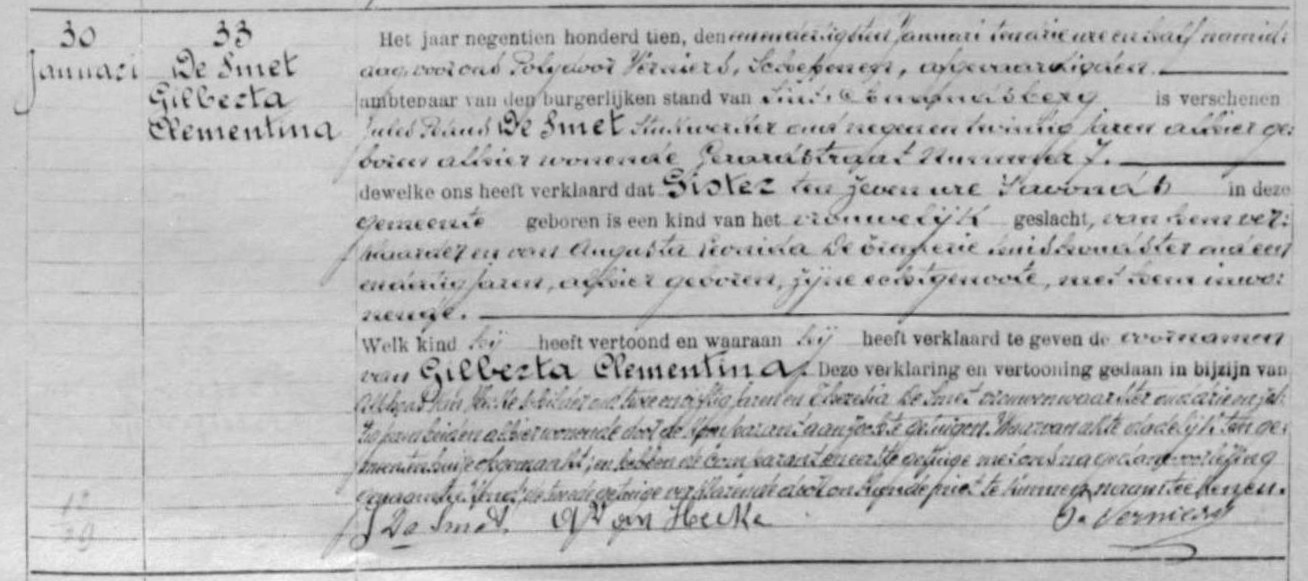 30
Januari
33
De Smet
Gilberta
Clementina
Het jaar negentien honderd tien, den eenendertigsten Januari ten drie ure en half namid-
dag, voor ons Polydoor Verniers, Schepenen, afgevaardigden
ambtenaar van den burgerlijken stand van Sint-Amandsberg is verschenen
Jules De Smet stukwerker oud negenentwintig jaren alhier ge-
boren alhier wonende Gerardstraat Nummer 7.
dewelke ons heeft verklaard dat Gister ten zeven ure 's avonds in deze
gemeente geboren is een kind van het vrouwelijk geslacht, van hem ver-
klaarder en van Augusta Leonida De huishoudster oud een
en dertig jaren, alhier geboren, zijne echtgenoote, met hem inwo-
nende.
Welk kind hij heeft vertoond en waaraan hij heeft verklaard te geven de voornamen
van Gilberta Clementina. Deze verklaring en vertooning gedaan in bijzijn van
Van Hecke schilder oud twee en vijftig jaren en Theresia De Smet vrouwenwaakster oud drie en
jaren beiden alhier wonende door de Comparant aangezochte getuigen. Waarvan akte dadelijk ten ge-
meentenhuize opgemaakt; en hebben de comparant en eerste getuige met ons na gedane voorlezing
de tweede getuige verklarende niet te kunnen naamteekenen.
12
39
J De Smet. A Van Hecke P. Verniers